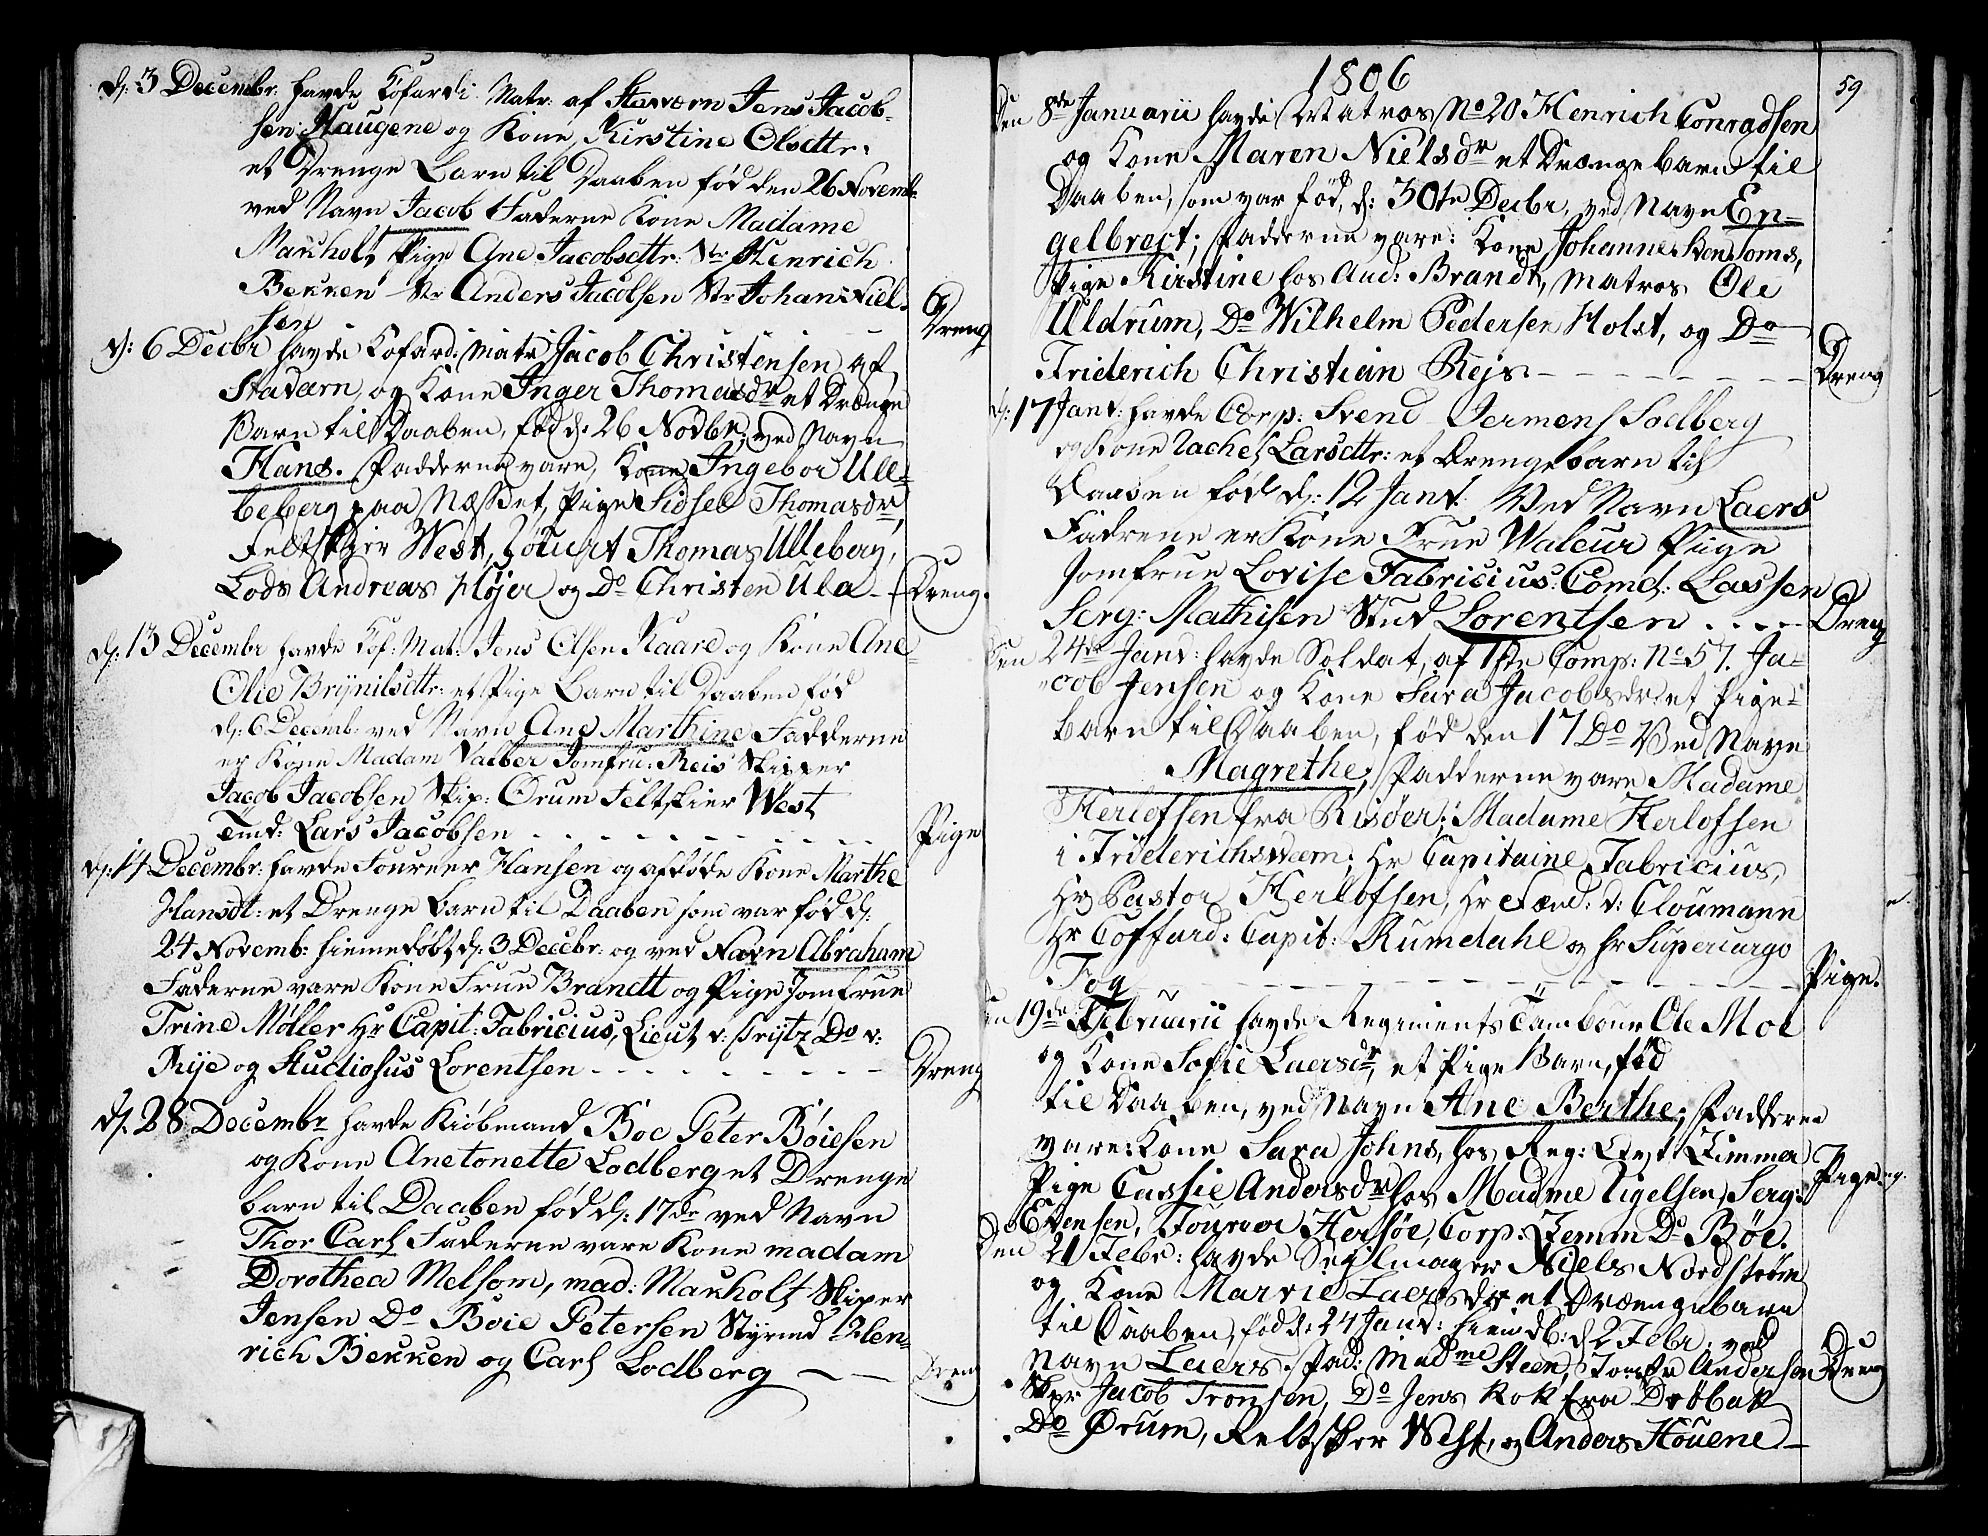 d: 3 Decembr: havde Kofardi Matr: af Stavern Jens Jacob-
sen Haugene og Kone Kirstine Olsdttr:
et Drenge Barn til Daaben fød den 26 Novembr
ved Navn Jacob Faderne Kone Madame
Maxholt Pige Ane Jacobsdttr: Str Henrich
Bekken Str Anders Jacobsen Str Johan Niel-
sen
Dreng
d: 6 Decbr havde Kofard: Matr Jacob Christensen af
Staværn, og Kone Inger Thomasdr et Drænge
Barn til Daaben, fød d: 26 Novbr, ved Navn
Hans. Fadderne vare, Kone Ingebor Ulle-
beberg paa Næsset, Pige Sidsel Thomasdr,
Feltskjer West, Thomas Ulleberg,
Lods Andreas Høyer og Do Christen Ula
Dreng.
d: 13 Decembr havde Kof: Mat: Jens Olsen Kaare og Kone Ane
Olie Brynilsdttr: et Pige Barn til Daaben fød
d: 6 Decemb: ved Navn Ane Marthine Fadderne
er Kone Madam Valber Jomfru: Reis Skipper
Jacob Jacobsen Skip: Ørum Feltskier West
Tmd: Lars Jacobsen
Pige
d: 14 Decembr: havde Foureer Hansen og afdøde Kone Marthe
Hansdt: et Drenge Barn til Daaben som var fød d:
24 Novemb: hiemedøbt d: 3 Decebr: og ved Navn Abraham
Faderne vare Kone Frue Brandtt og Pige Jomfrue
Trine Møller Hr Capit: Fabricius, Lieut v: Prytz Do v:
Rye og Studiosus Lorentsen
Dreng
d: 28 Decembr havde Kiøbmand Boc Peter Bøiesen
og Kone Anetonette Lodberg et Drenge
barn til Daaben fød d: 17de ved Navn
Thor Carl Faderne vare Kone madam
Dorothea Melsom, mad: Maxholt Skiper
Jensen Do Boie Petersen Styrmd Hen-
rich Bekken og Carl Lodberg
Dreng
1806
59
Den 8de Januarii havde Matros No 20 Henrich Conradsen
og Kone Maren Nielsdr et Drængebarn til
Daaben, som var fød, d: 30te Decbr, ved Navn En-
gelbregt; Fadderne vare: Kone Johanne Sven Toms,
Pige Kirstine hos Aud: Brandt, Matros Ole
Uldrum, Do Wilhelm Pedersen Holst, og Do
Friderich Christian Rejs
Dreng
d: 17 Janv: havde Corp: Svend Jermens Sodberg
og Kone Rachel Larsdttr: et Drengebarn til
Daaben fød d: 12 Janv: Ved Navn Laers
Fadrene er Kone Frue Waleur Pige
Jomfrue Lovise Fabricius Comd: Lassen
Serg: Mathisen Stud Lorentsen
Dreng
Den 24de Janv: havde Soldat, af 1ste Comp: No 57. Ja-
cob Jensen og Kone Sara Jacobsdr: et Pige-
barn til Daaben, fød den 17 Do Ved Navn
Magrethe; Fadderne vare Madame
Herlofsen fra Risøer; Madame Herlofsen
i Friderichsværn; Hr Capitaine Fabricius,
Hr Pastor Herlofsen, Hr Fænd: v: Cloumann
Hr Coffard: Capit: Rumdahl og Hr Supercargo
Fog
Pige.
Den 19de Februarii havde Regiments Tambour Ole Moe
og Kone Sofie Laersdr, et Pige Barn, fød
til Daaben, ved Navn Ane Berthe; Faddere
vare: Kone Sara Johns, hos Reg: Zimmer
Pige Cassie Andersdr hos Madme Tigelsen, Serg:
Evensen, Fourer Hersøe, Corp: Zemm Do Bøe.
Pige
Den 21 Febr: havde Seglmager Niels Nordstrøm
og Kone Marrie Laersdr et Drængebarn
til Daaben, fød d: 24 Janv: hiemdb: d 2 Febr: ved
Navn Laers. Fad: Madme Steen, Jomfr Andersen
Dreng
Skpr Jacob Tronsen, Do Jens Kok fra Drøbak
Do Ørum, Feltskjer West, og Anders Houene